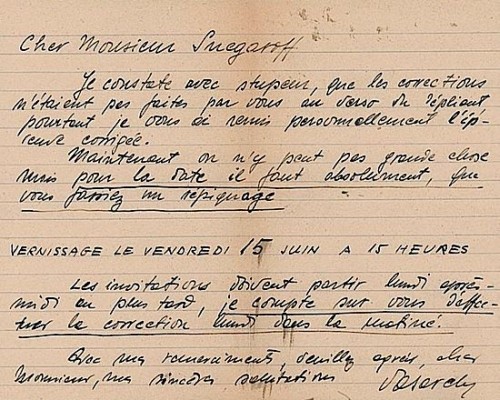 Cher Monsieur Snegaroff
Je constate avec stupeur, que les corrections
n'étaient pas faites par vous au verso du dépliant
pourtant je vous ai remis personnellement l'ép-
reuve corrigée.
Maintenant on n'y peut pas grande chose
mais pour la date il faut absolument, que
vous fassiez un repiquage
VERNISSAGE LE VENDREDI 15 JUIN A 15 HEURES
Les invitations doivent partir lundi après-
midi au plus tard, je compte sur vous d'effec-
tuer la correction lundi dans la matiné.
Avec mes remerciments, veuillez agréer, cher
Monsieur, mes sincères salutations